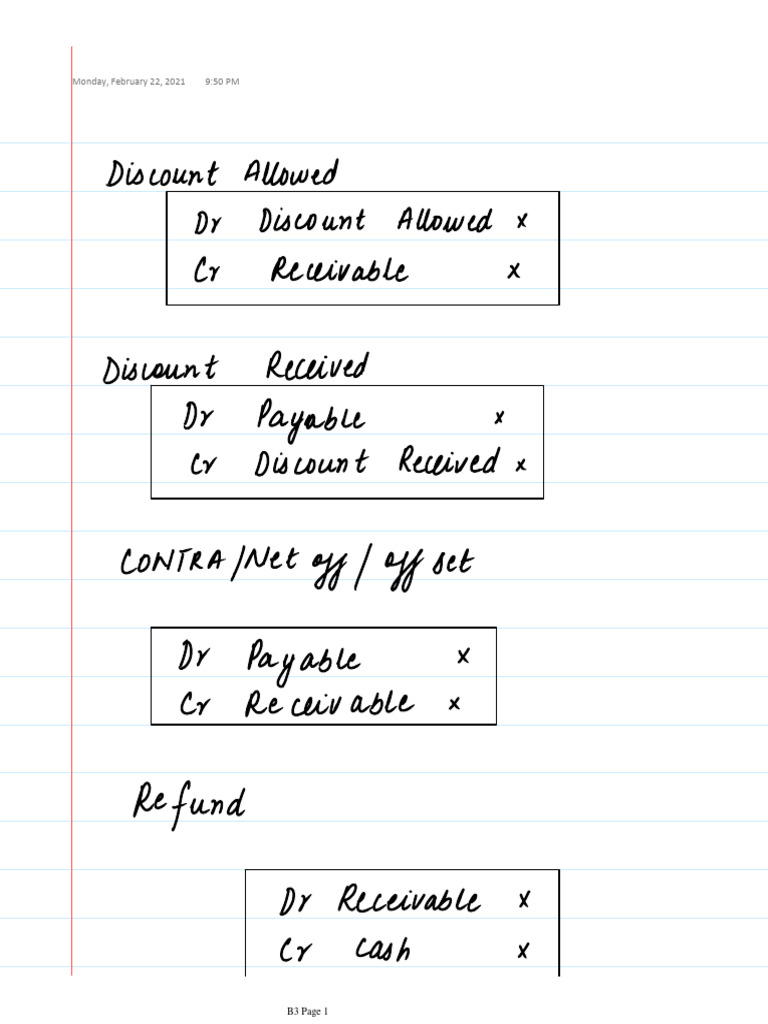 Monday, February 22, 2021 9:50 PM
Discount Allowed
Dr Discount Allowed x
Cr Receivable x
Discount Received
Dr Payable x
Cr Discount Received x
CONTRA/Net off/off set
Dr Payable x
Cr Receivable x
Refund
Dr Receivable x
Cr Cash x
B3 Page 1